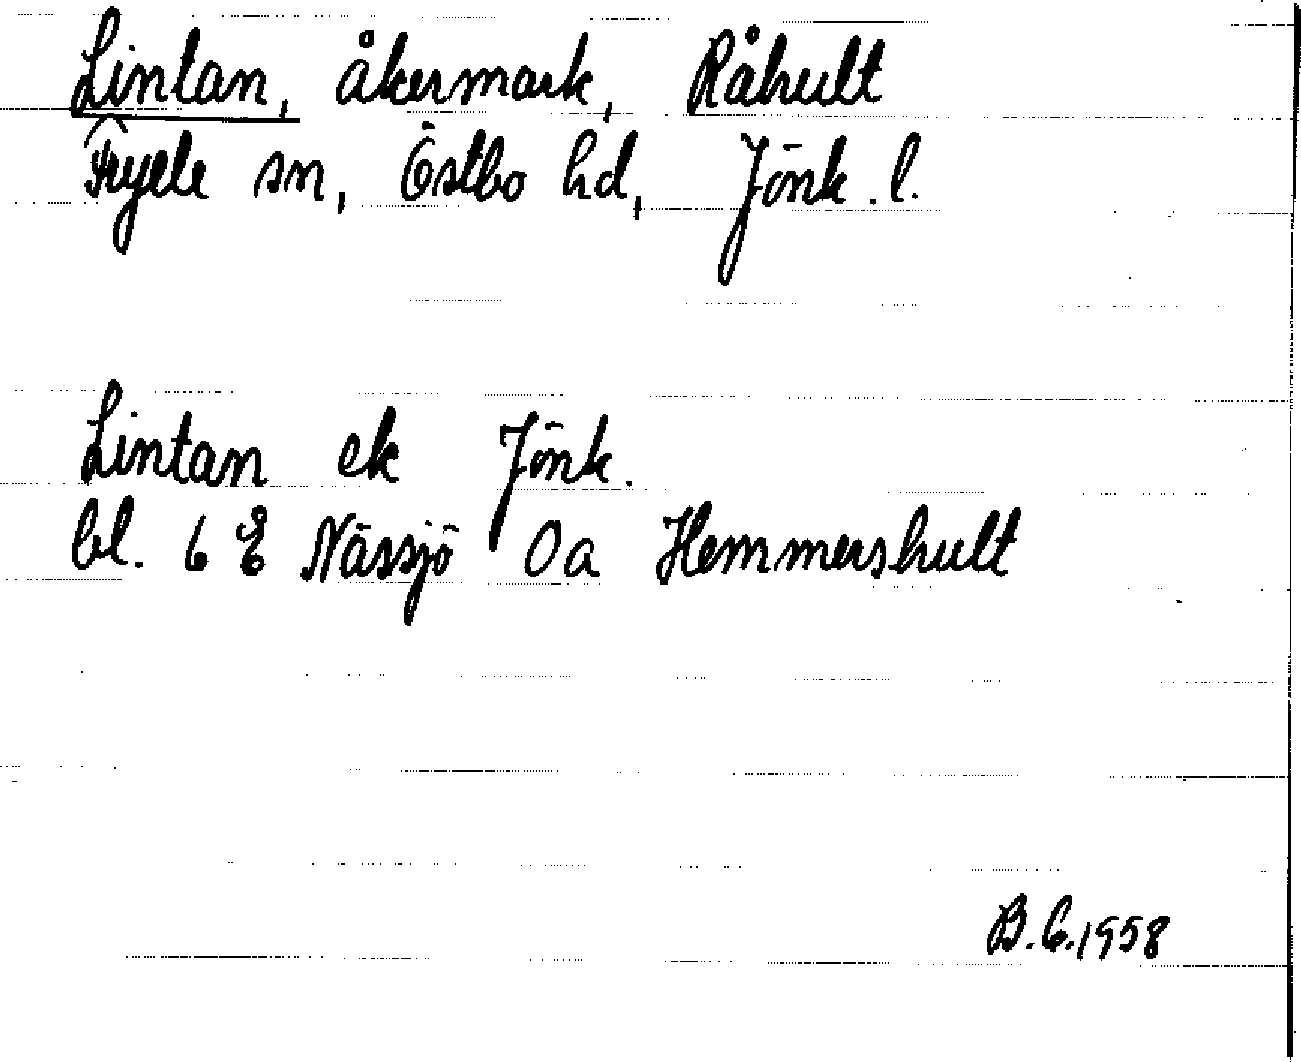 Lintan, åkermark, Råhult
Fryele sn, Östbo hd, Jönk. l.
Lintan ek Jönk.
bl. 6 E Nässjö 0a Hemmershult
B.E. 1958